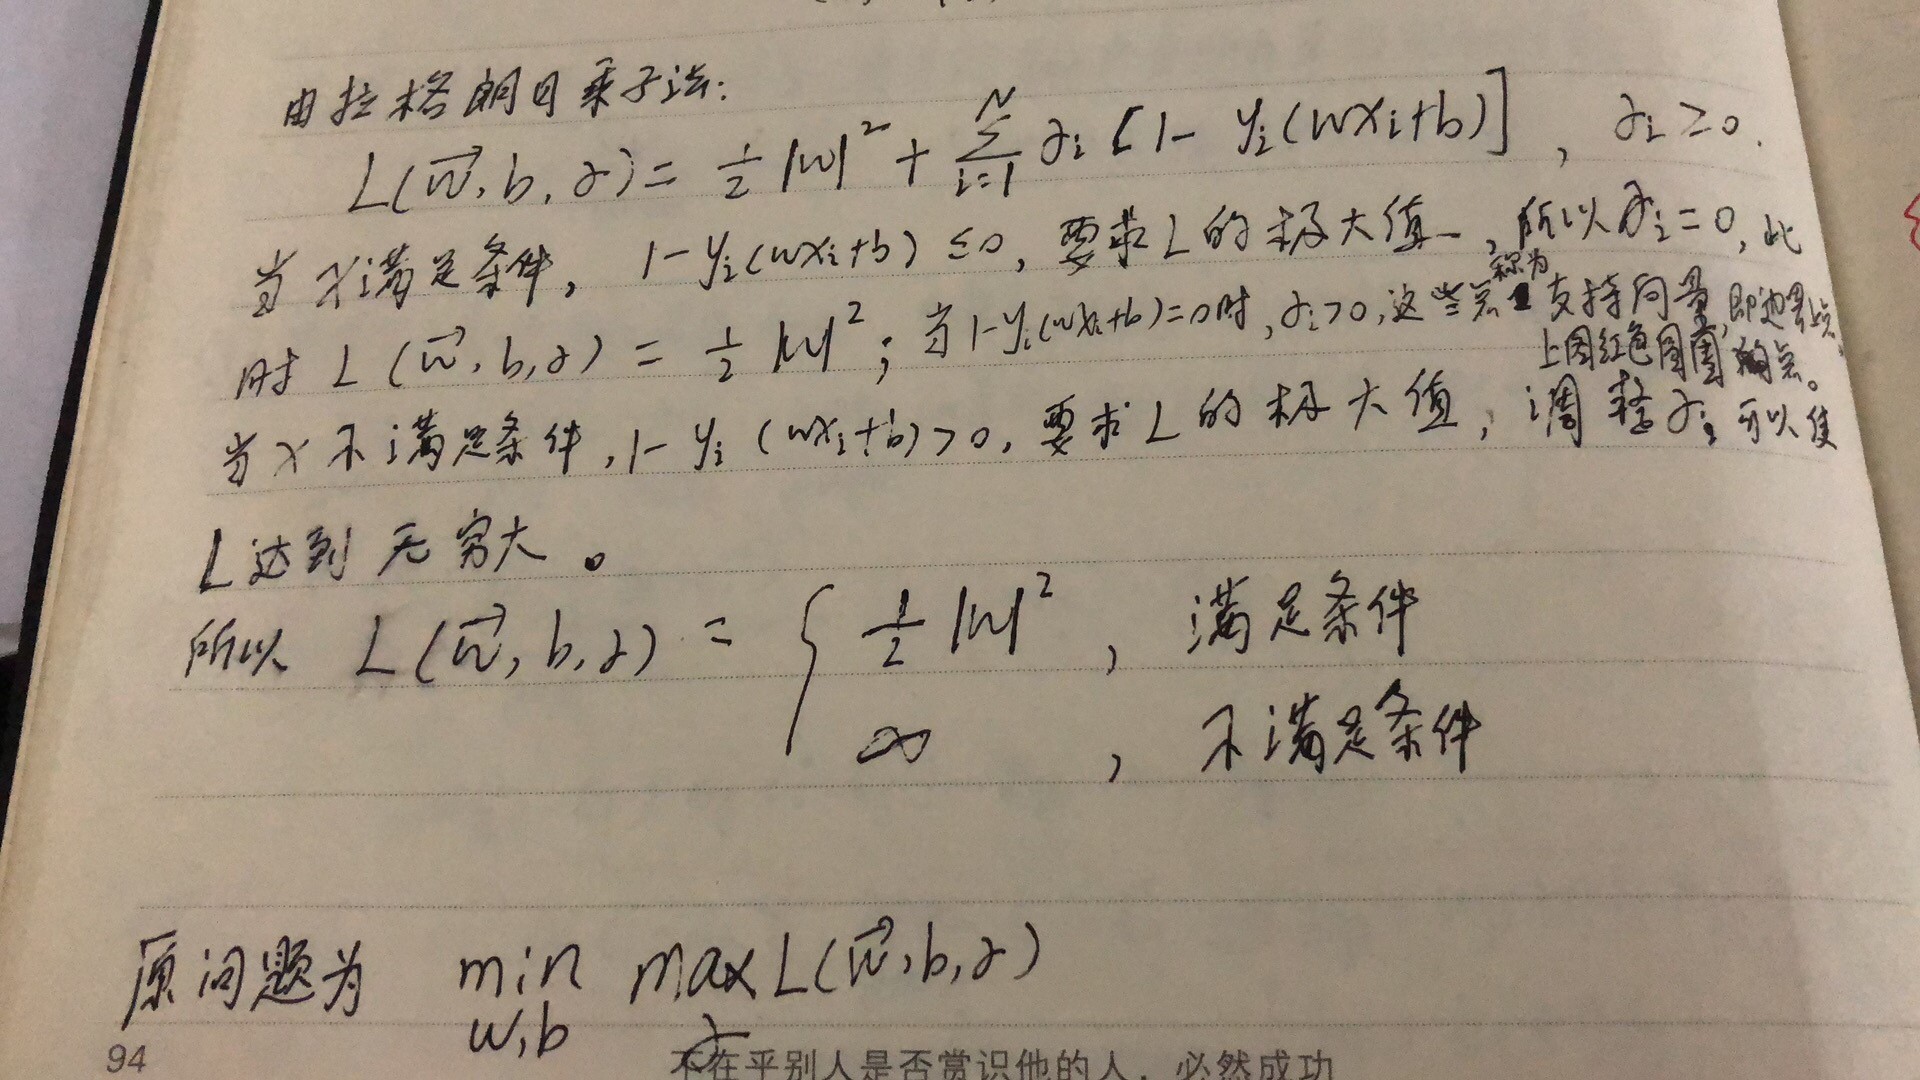 由拉格朗日乘子法:
L(w⃗, b, α) = 1/2 |w|² + Σ_{i=1}^{N} αi [1 - yi(wxi+b)], αi ≥ 0.
当x满足条件, 1-yi(wxi+b) ≤0, 要求L的极大值, 所以αi=0, 此
时 L(w⃗, b, α) = 1/2 |w|²; 当1-yi(wxi+b)=0时, αi>0, 这些点称为支持向量, 即边界点。
上图红色圈圈的点。
当x不满足条件, 1-yi(wxi+b)>0, 要求L的极大值, 调整αi, 可以使
L达到无穷大。
所以 L(w⃗, b, α) = { 1/2 |w|², 满足条件
∞, 不满足条件
原问题为 min max L(w⃗, b, α)
w,b α
94 不在乎别人是否赏识他的人，必然成功